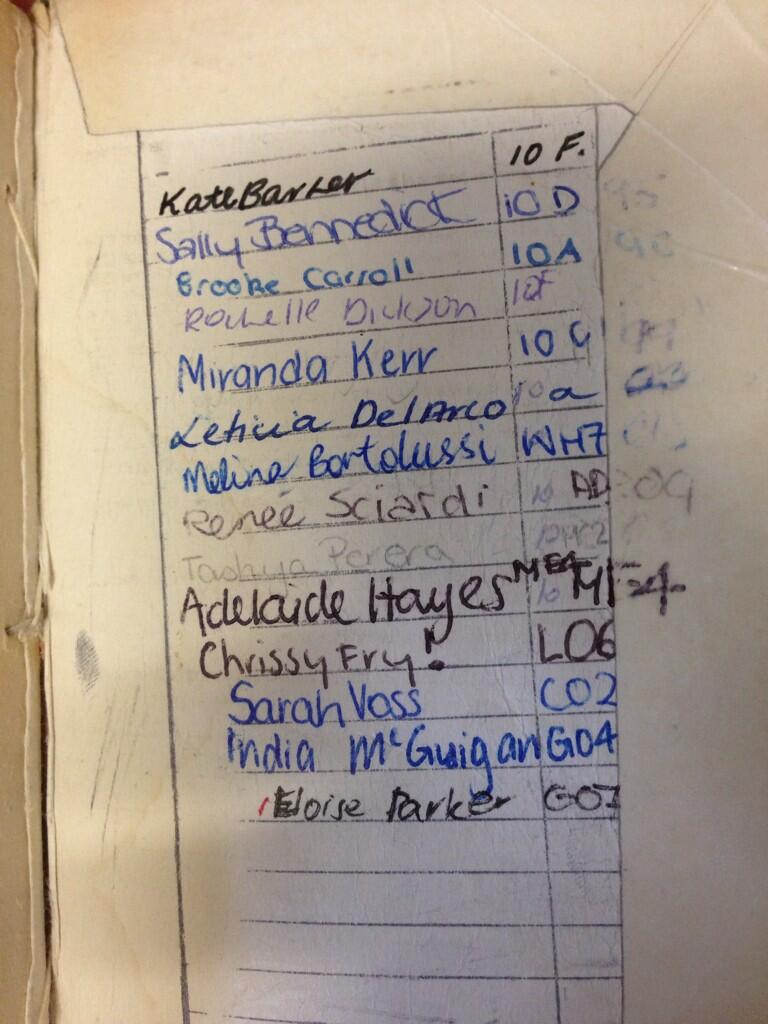 Kate Barker 10 F.
Sally Bennedict 10 D
Brooke Carroll 10A
Rochelle Dickson 10F
Miranda Kerr 10 G
Leticia DelArco 10 a
Melina Bortolussi WH7
Reneé Sciardi 10 AD
Tashya Perera
Adelaide Hayes ME4 10 ME4
Chrissy Fry! LO6
Sarah Voss CO2
India McGuigan GO4
Eloise Parker GO7